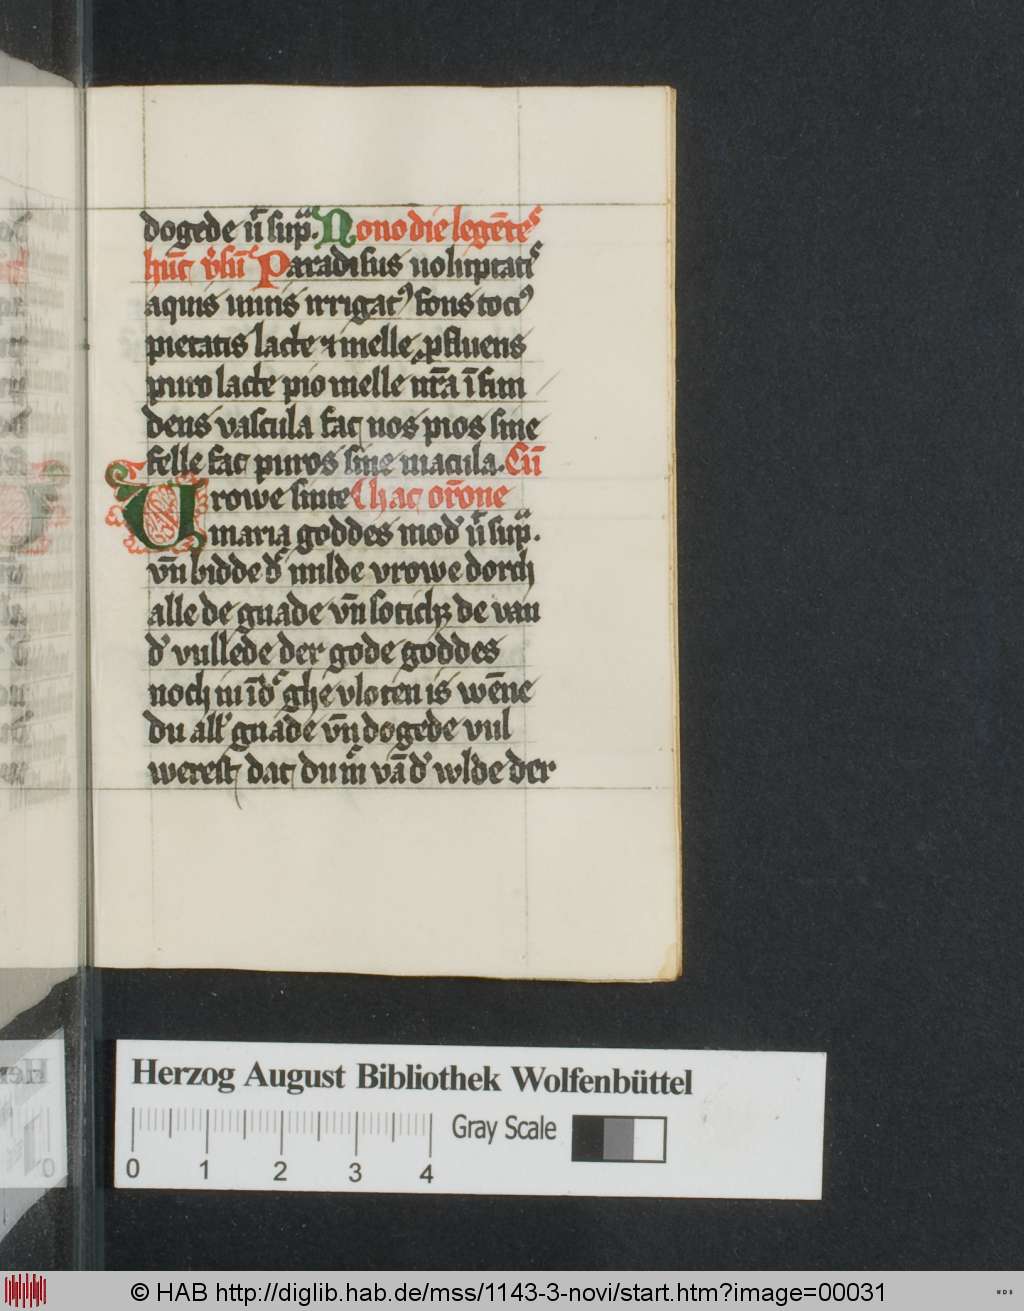 dogede vn̄ sup̄. Nono die legēte
hūc v̓sū Paradisus uoluptatis
aquis uiuis irrigatꝰ fons tociꝰ
pietatis lacte ⁊ melle ꝓfluens
puro lacte pio melle nr̄a īfun
dens vascula fac nos pios sine
felle fac puros sine macula. Cū
Urowe sūnte hac or̄one
maria goddes mod̓ vn̄ sup̄.
vn̄ bidde d̓ milde vrowe dorch
alle de gnade vn̄ soticheyt de van
d̓ vullede der gode goddes
noch in īd̓ ghe vloten is wēne
du all̓ gnade vn̄ dogede vul
werest dat du m̓ vā d̓ wlde der
Herzog August Bibliothek Wolfenbüttel
0 1 2 3 4 Gray Scale
© HAB http://diglib.hab.de/mss/1143-3-novi/start.htm?image=00031